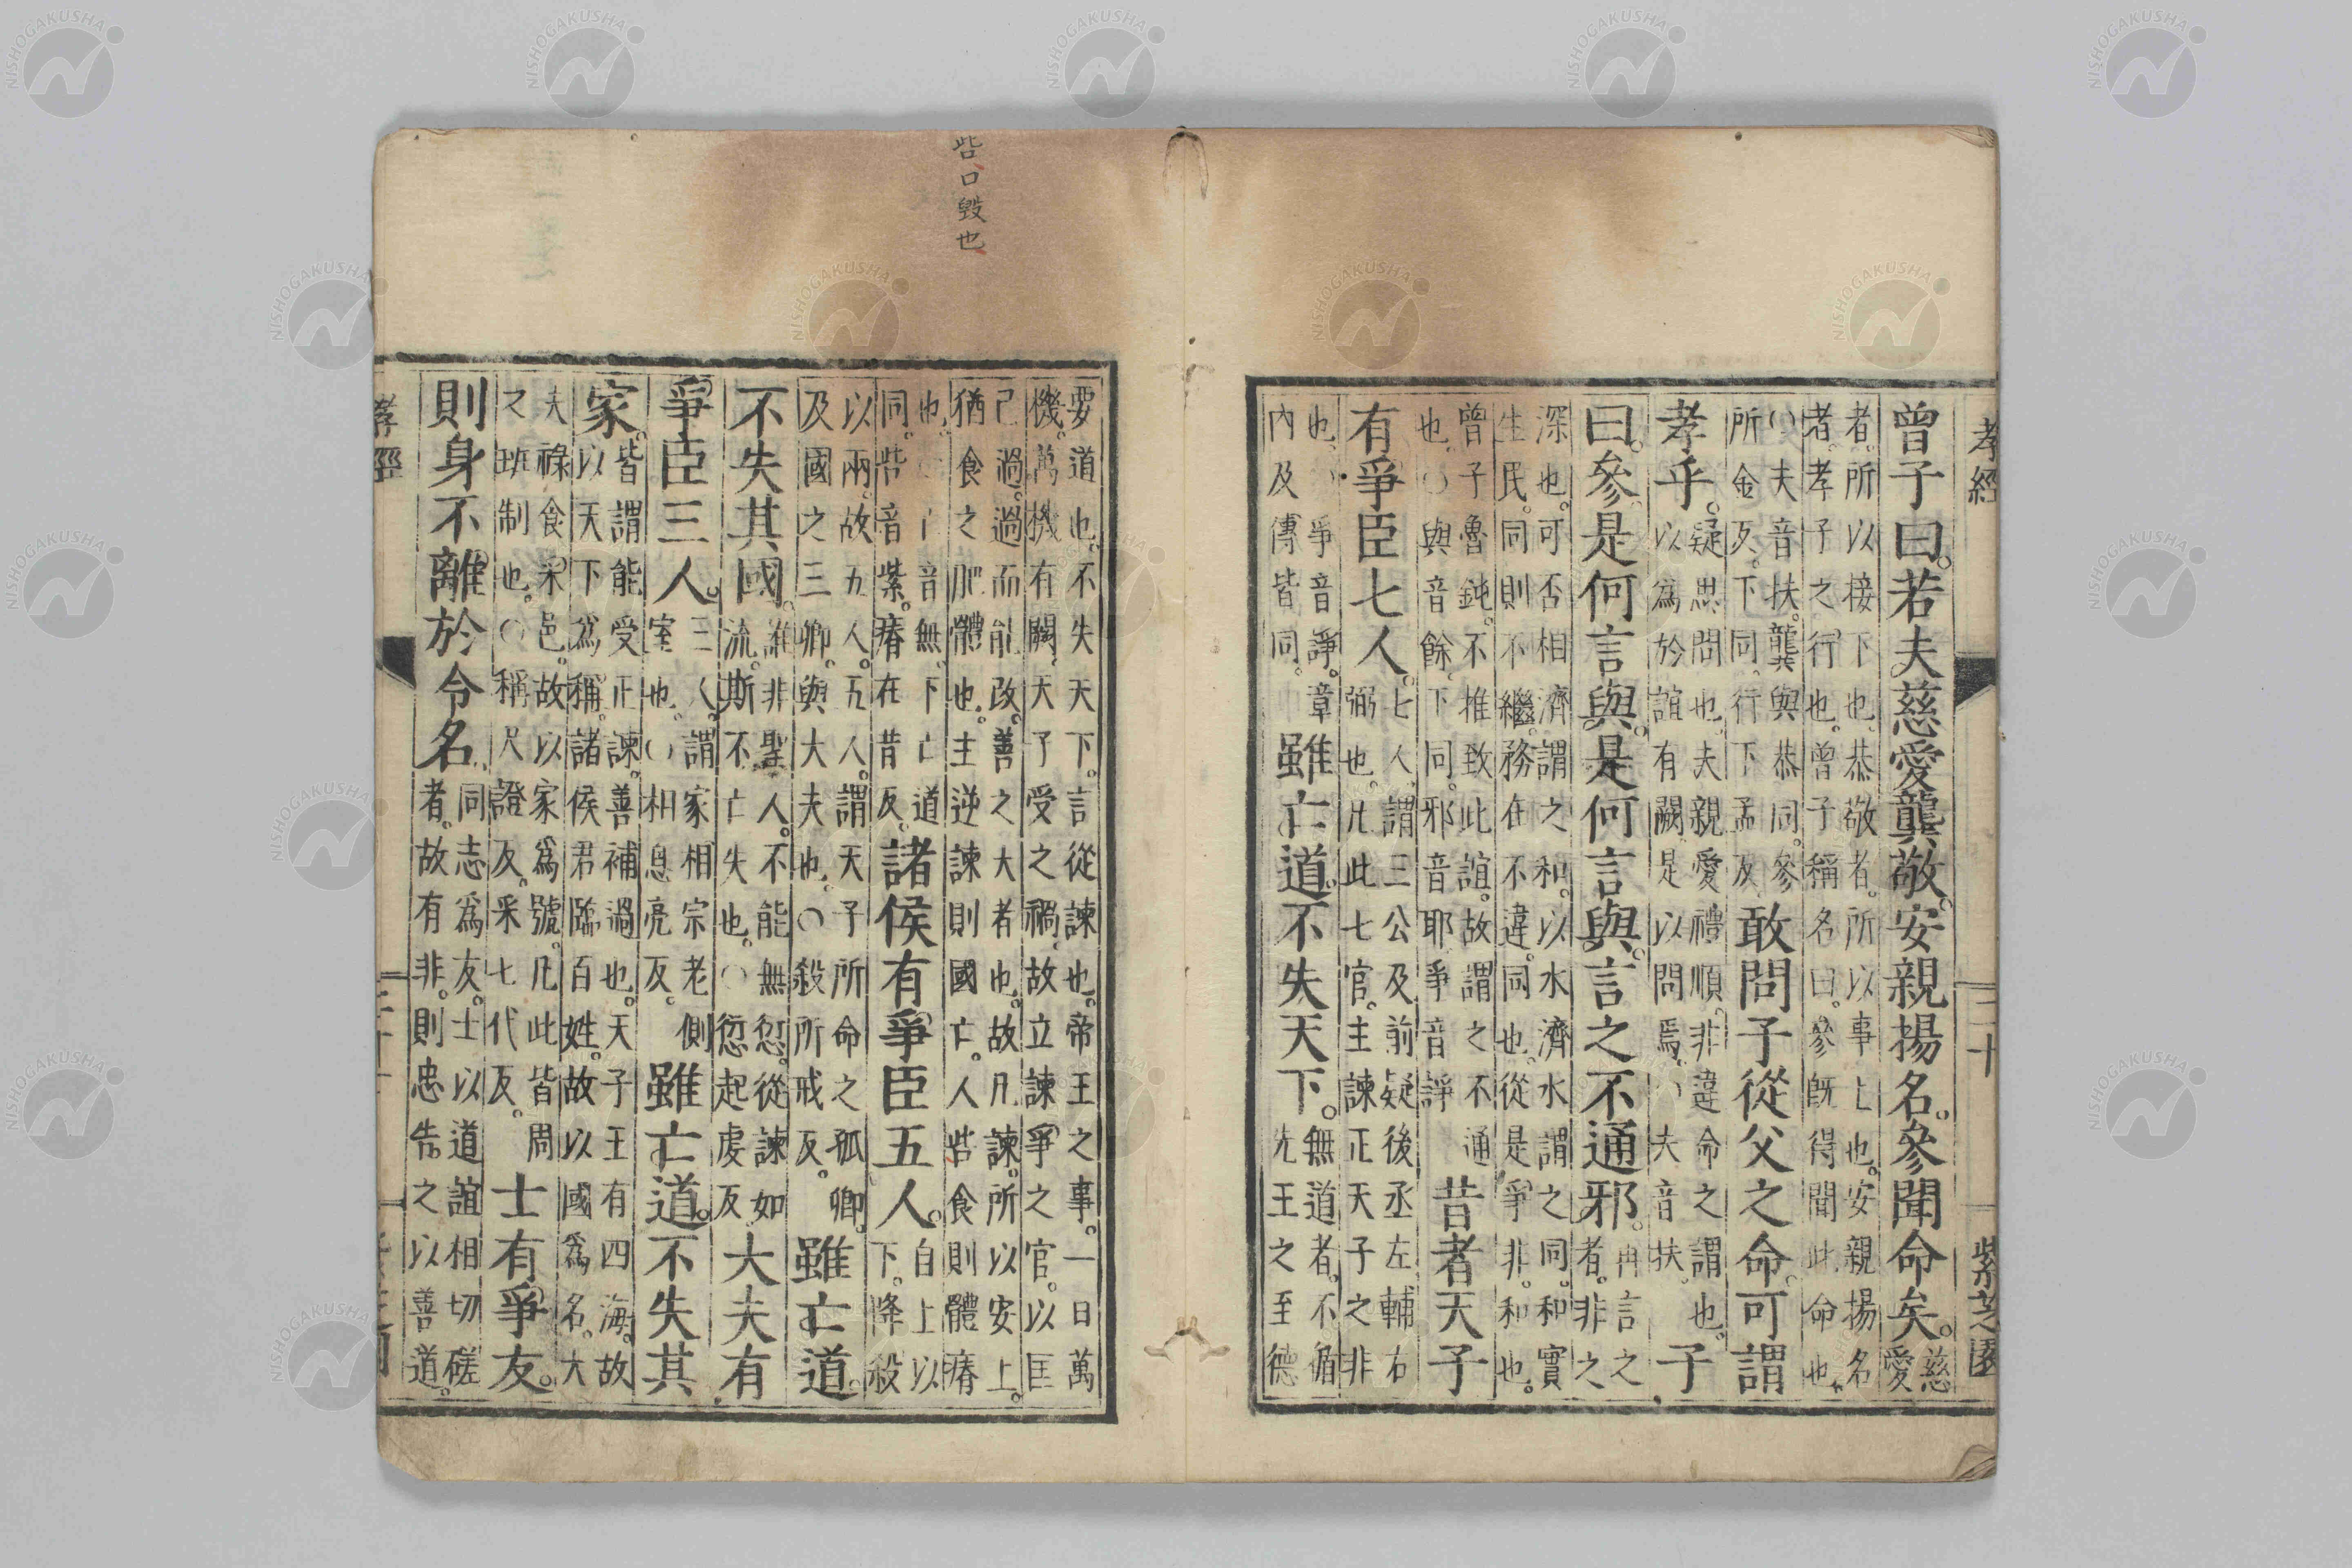 孝經
三十
紫芝園
曾子曰。若夫慈愛龔敬。安親揚名。參聞命矣。慈愛
者。所以接下也。恭敬者。所以事上也。安親揚名
者。孝子之行也。曾子稱名曰。參既得聞此命也。
〇夫音扶。龔與恭同。參
所金反。下同。行下孟反 敢問子從父之命。可謂
孝乎。疑思問也。夫親愛禮順。非違命之謂也。
以爲於誼有闕。是以問焉。〇夫音扶。 子
曰。參是何言與。是何言與。言之不通邪。冉言之者。非之
深也。可否相濟。謂之和。以水濟水。謂之同。和實
生民。同則不繼。務在不違。同也。從是爭非。和也。
曾子魯鈍。不推致此誼。故謂之不通
也。〇與音餘。下同。邪音耶。爭音諍 昔者天子
有爭臣七人。七人。謂三公及前疑後丞左輔右
弼也。凡此七官。主諫正天子之非
也。〇爭音諍。章
內及傳皆同。 雖亡道。不失天下。無道者。不循
先王之至德
要道也。不失天下。言從諫也。帝王之事。一日萬
機。萬機有闕。天子受之禍。故立諫爭之官。以匡
己過。過而能改。善之大者也。故凡諫。所以安上。
猶食之肥體也。主逆諫則國亡。人呰食則體瘠
也。〇亡音無。下亡道
同。呰音紫。瘠在昔反。 諸侯有爭臣五人。自上以
下。降殺
以兩。故五人。五人。謂天子所命之孤卿。
及國之三卿。與大夫也。〇殺所戒反。 雖亡道。
不失其國。誰非聖人。不能無愆。從諫如
流。斯不亡失也。〇愆起虔反 大夫有
爭臣三人。三人。謂家相宗老側
室也。〇相息亮反。 雖亡道。不失其
家。皆謂能受正諫。善補過也。天子王有四海。故
以天下爲稱。諸侯君臨百姓。故以國爲名。大
夫祿食采邑。故以家爲號。凡此皆周
之班制也。〇稱尺證反。采七代反。 士有爭友。
則身不離於令名。同志爲友。士以道誼相切磋
者。故有非。則忠告之以善道。
孝經
呰、口毀也